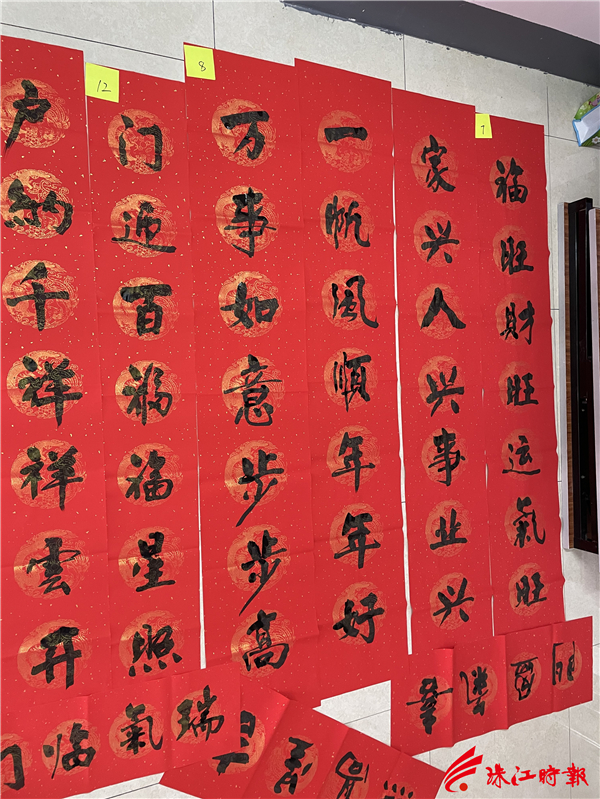 7
福旺財旺运氣旺
家兴人兴事业兴
一帆風順年年好
8
万事如意步步高
12
门迎百福福星照
户納千祥祥雲开
瑞氣临门
珠江時報